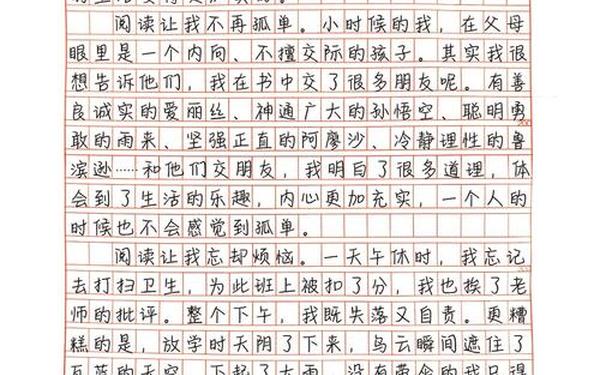 阅读让我不再孤单。小时候的我，在父母
眼里是一个内向、不擅交际的孩子。其实我很
想告诉他们，我在书中交了很多朋友呢。有善
良诚实的爱丽丝、神通广大的孙悟空、聪明勇
敢的雨来、坚强正直的阿廖沙、冷静理性的鲁
滨逊……和他们交朋友，我明白了很多道理，体
会到了生活的乐趣，内心更加充实，一个人的
时候也不会感觉到孤单。
阅读让我忘却烦恼。一天午休时，我忘记
去打扫卫生，为此班上被扣了分，我也挨了老
师的批评。整个下午，我既失落又自责。更糟
糕的是，放学时天阴了下来，乌云瞬间遮住了
的天空，下起了大雨。没有带伞的我只得